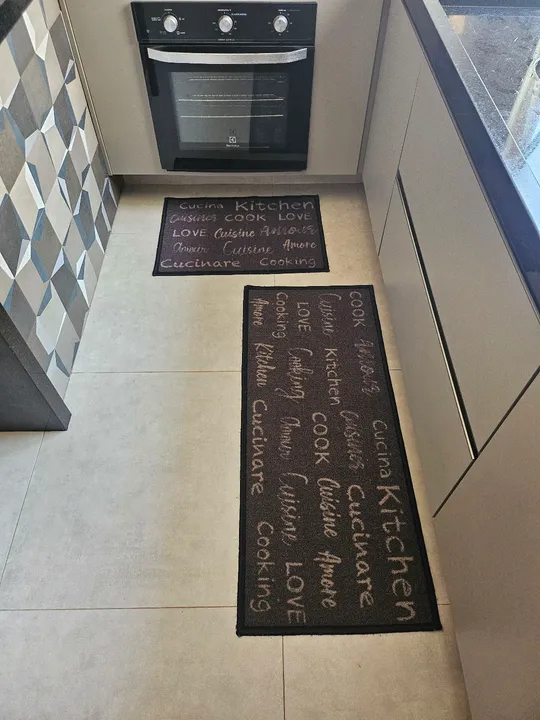 Electrolux
Cucina Kitchen
cuisines COOK LOVE
LOVE Cuisine Amour
Amour Cuisine Amore
Cucinare Cooking
COOK Amour
Cuisine Kitchen cuisines Cucina Kitchen
LOVE Cooking COOK Cuisine Cucinare
Cooking Amour Cuisine Amore
Amore Kitchen Cucinare Cooking LOVE